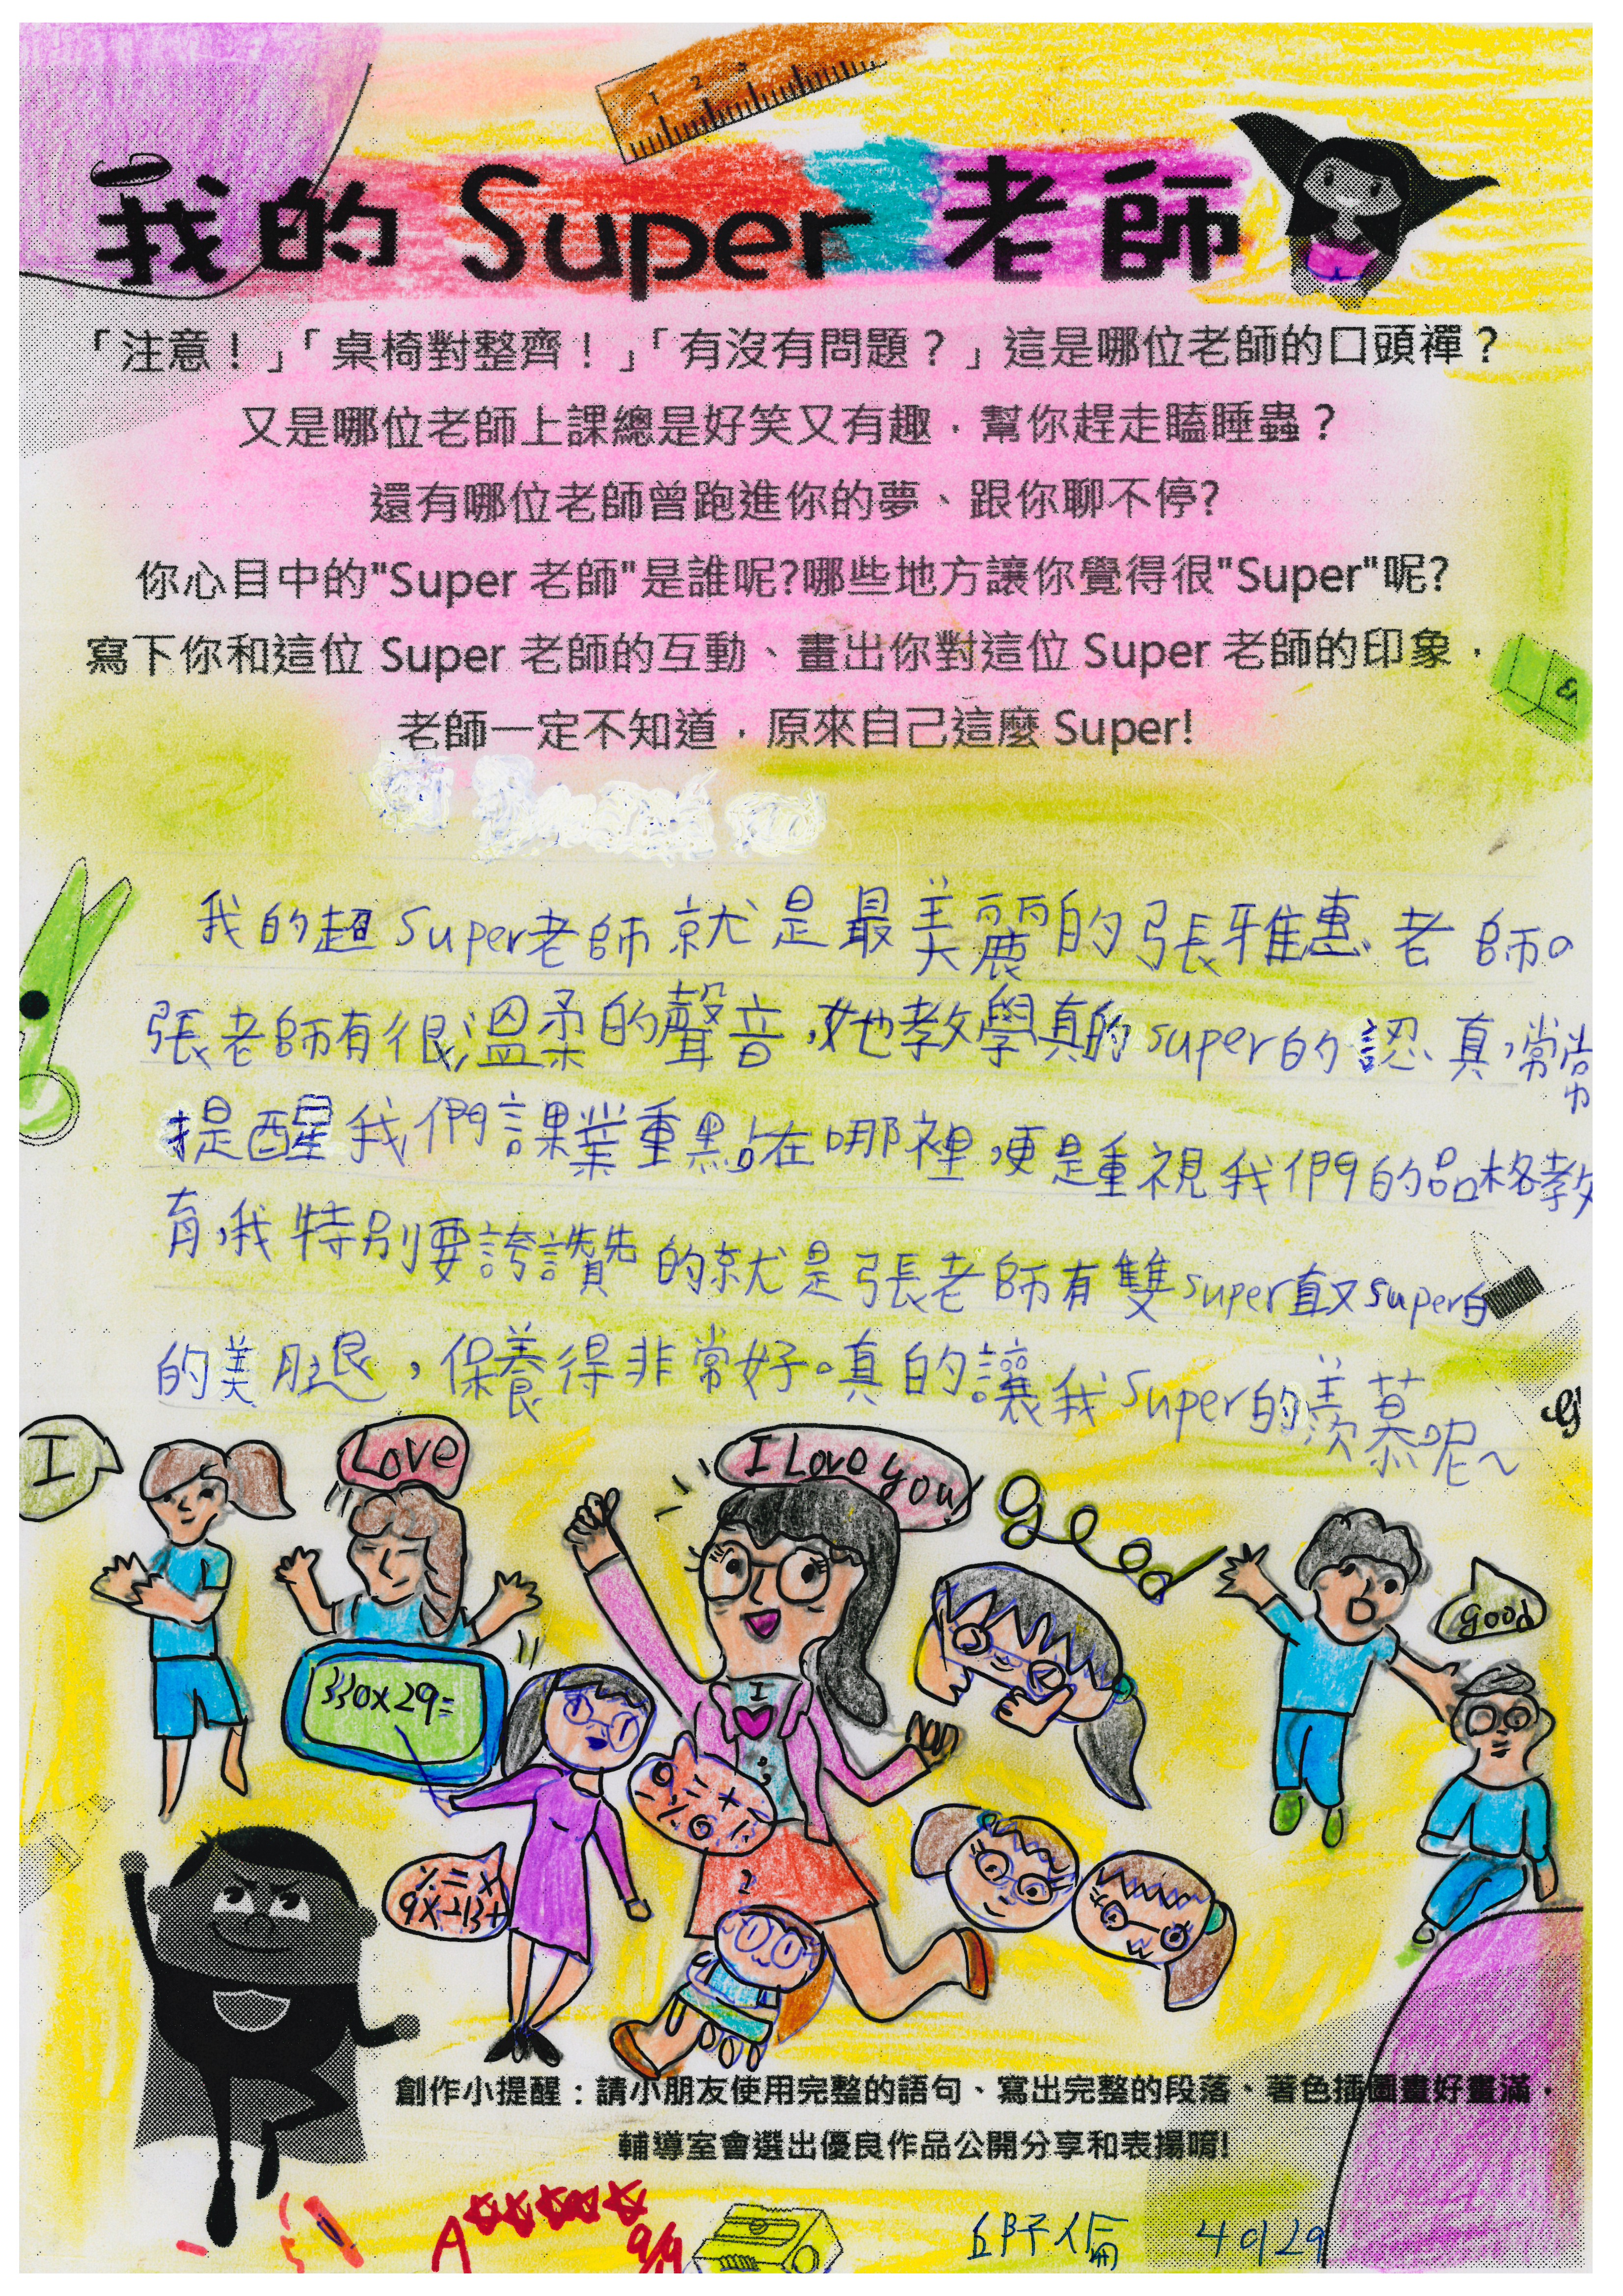 1 2 3
我的 Super 老師
「注意！」「桌椅對整齊！」「有沒有問題？」這是哪位老師的口頭禪？
又是哪位老師上課總是好笑又有趣，幫你趕走瞌睡蟲？
還有哪位老師曾跑進你的夢、跟你聊不停?
你心目中的"Super 老師"是誰呢?哪些地方讓你覺得很"Super"呢?
寫下你和這位 Super 老師的互動、畫出你對這位 Super 老師的印象，
老師一定不知道，原來自己這麼 Super!
我的超Super老師就是最美麗的張雅惠老師。
張老師有很溫柔的聲音，她教學真的super的認真，常常
提醒我們課業重點在哪裡，更是重視我們的品格教
育，我特別要誇讚的就是張老師有雙super直又super白
的美腿，保養得非常好。真的讓我super的羨慕呢~
I
Love
I Love you!
good
good
330x29=
I
9x-213+
創作小提醒：請小朋友使用完整的語句、寫出完整的段落、著色插圖畫好畫滿，
輔導室會選出優良作品公開分享和表揚唷!
A
9/9
40129